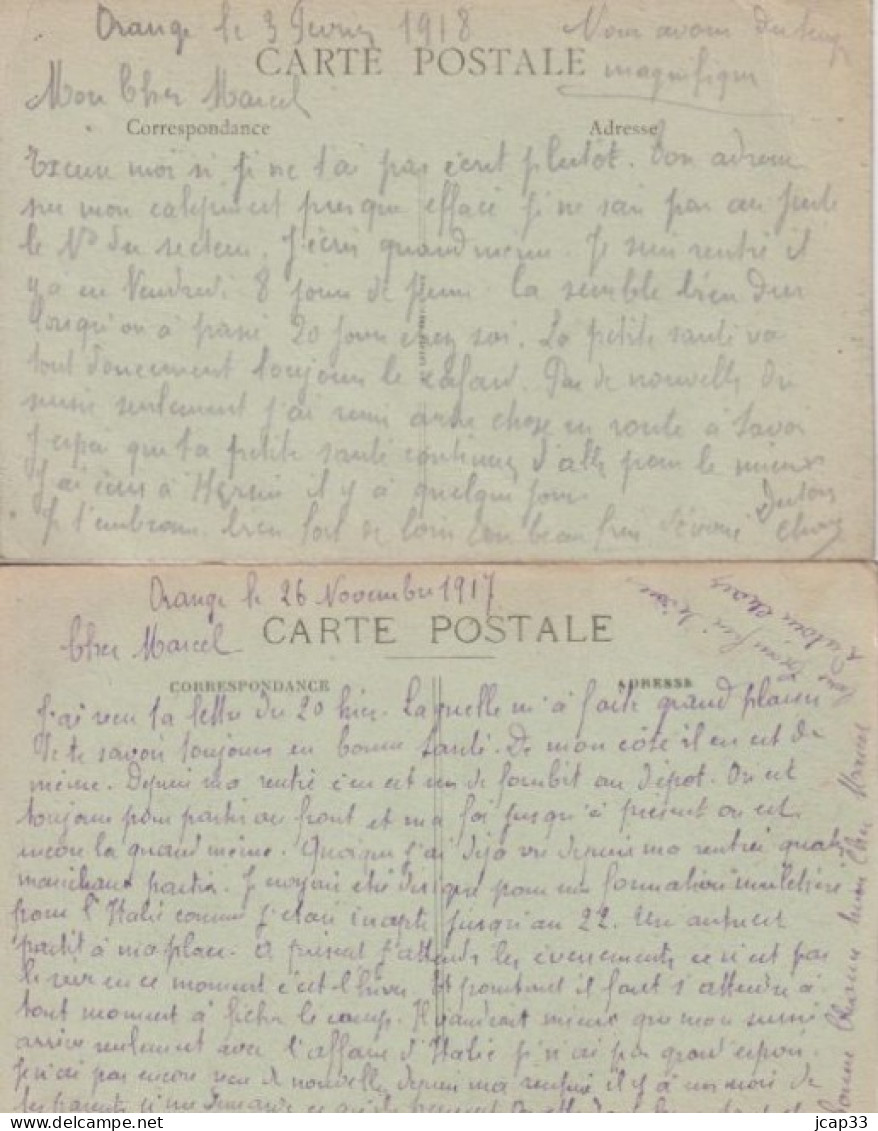 Orange le 3 Février 1918
Nous avons du temps
magnifique
CARTE POSTALE
Mon Cher Marcel
Correspondance
Adresse
Excuse moi si je ne t'ai pas écrit plutôt. Ton adresse
sur mon calepin est presque effacé je ne sai pas au juste
le N° du secteur. J'écris quand même. Je suis rentré il
y a eu Vendredi 8 jours de perm. Ca semble bien dur
lorsqu'on à passé 20 jours chez soi. La petite santé va
tout doucement toujours le cafard. Pas de nouvelle du
sursis seulement j'ai remis autre chose en route à savoir
J'espoi que ta petite santé continue d'aller pour le mieux
J'ai écris à il y à quelque jours
Je t'embrasse bien fort de loin ton beau frère dévoué
CARTE POSTALE
Orange le 26 Novembre 1917
Cher Marcel
CORRESPONDANCE
ADRESSE
J'ai reçu ta lettre du 20 hier. Laquelle m'à faite grand plaisir
De te savoir toujours en bonne santé. De mon côté il en est de
même. Depuis ma rentré s'en est un de fourbit au dépôt. On est
toujours pour partir au front et ma foi jusqu'à présent on est
encore la quand même. Quoique j'ai déjà vu depuis ma rentrée quatre
maréchaux partir. pour une formation muletière
pour l'Italie comme j'étais inapte jusqu'au 22. Un autre est
partit à ma place. A présent j'attends les évènements ce n'est pas
le rêve en ce moment c'est l'hiver. Et pourtant il faut s'attendre à
tout moment à ficher le camp. Il vaudrait mieux que mon sursis
arrive seulement avec l'affaire d'Italie je n'ai pas grand espoir.
Je n'ai pas encore reçu de nouvelle depuis ma rentrée il y à un mois de
tes parents je me demande ce
Bonne Chance mon Cher Marcel
jcap33